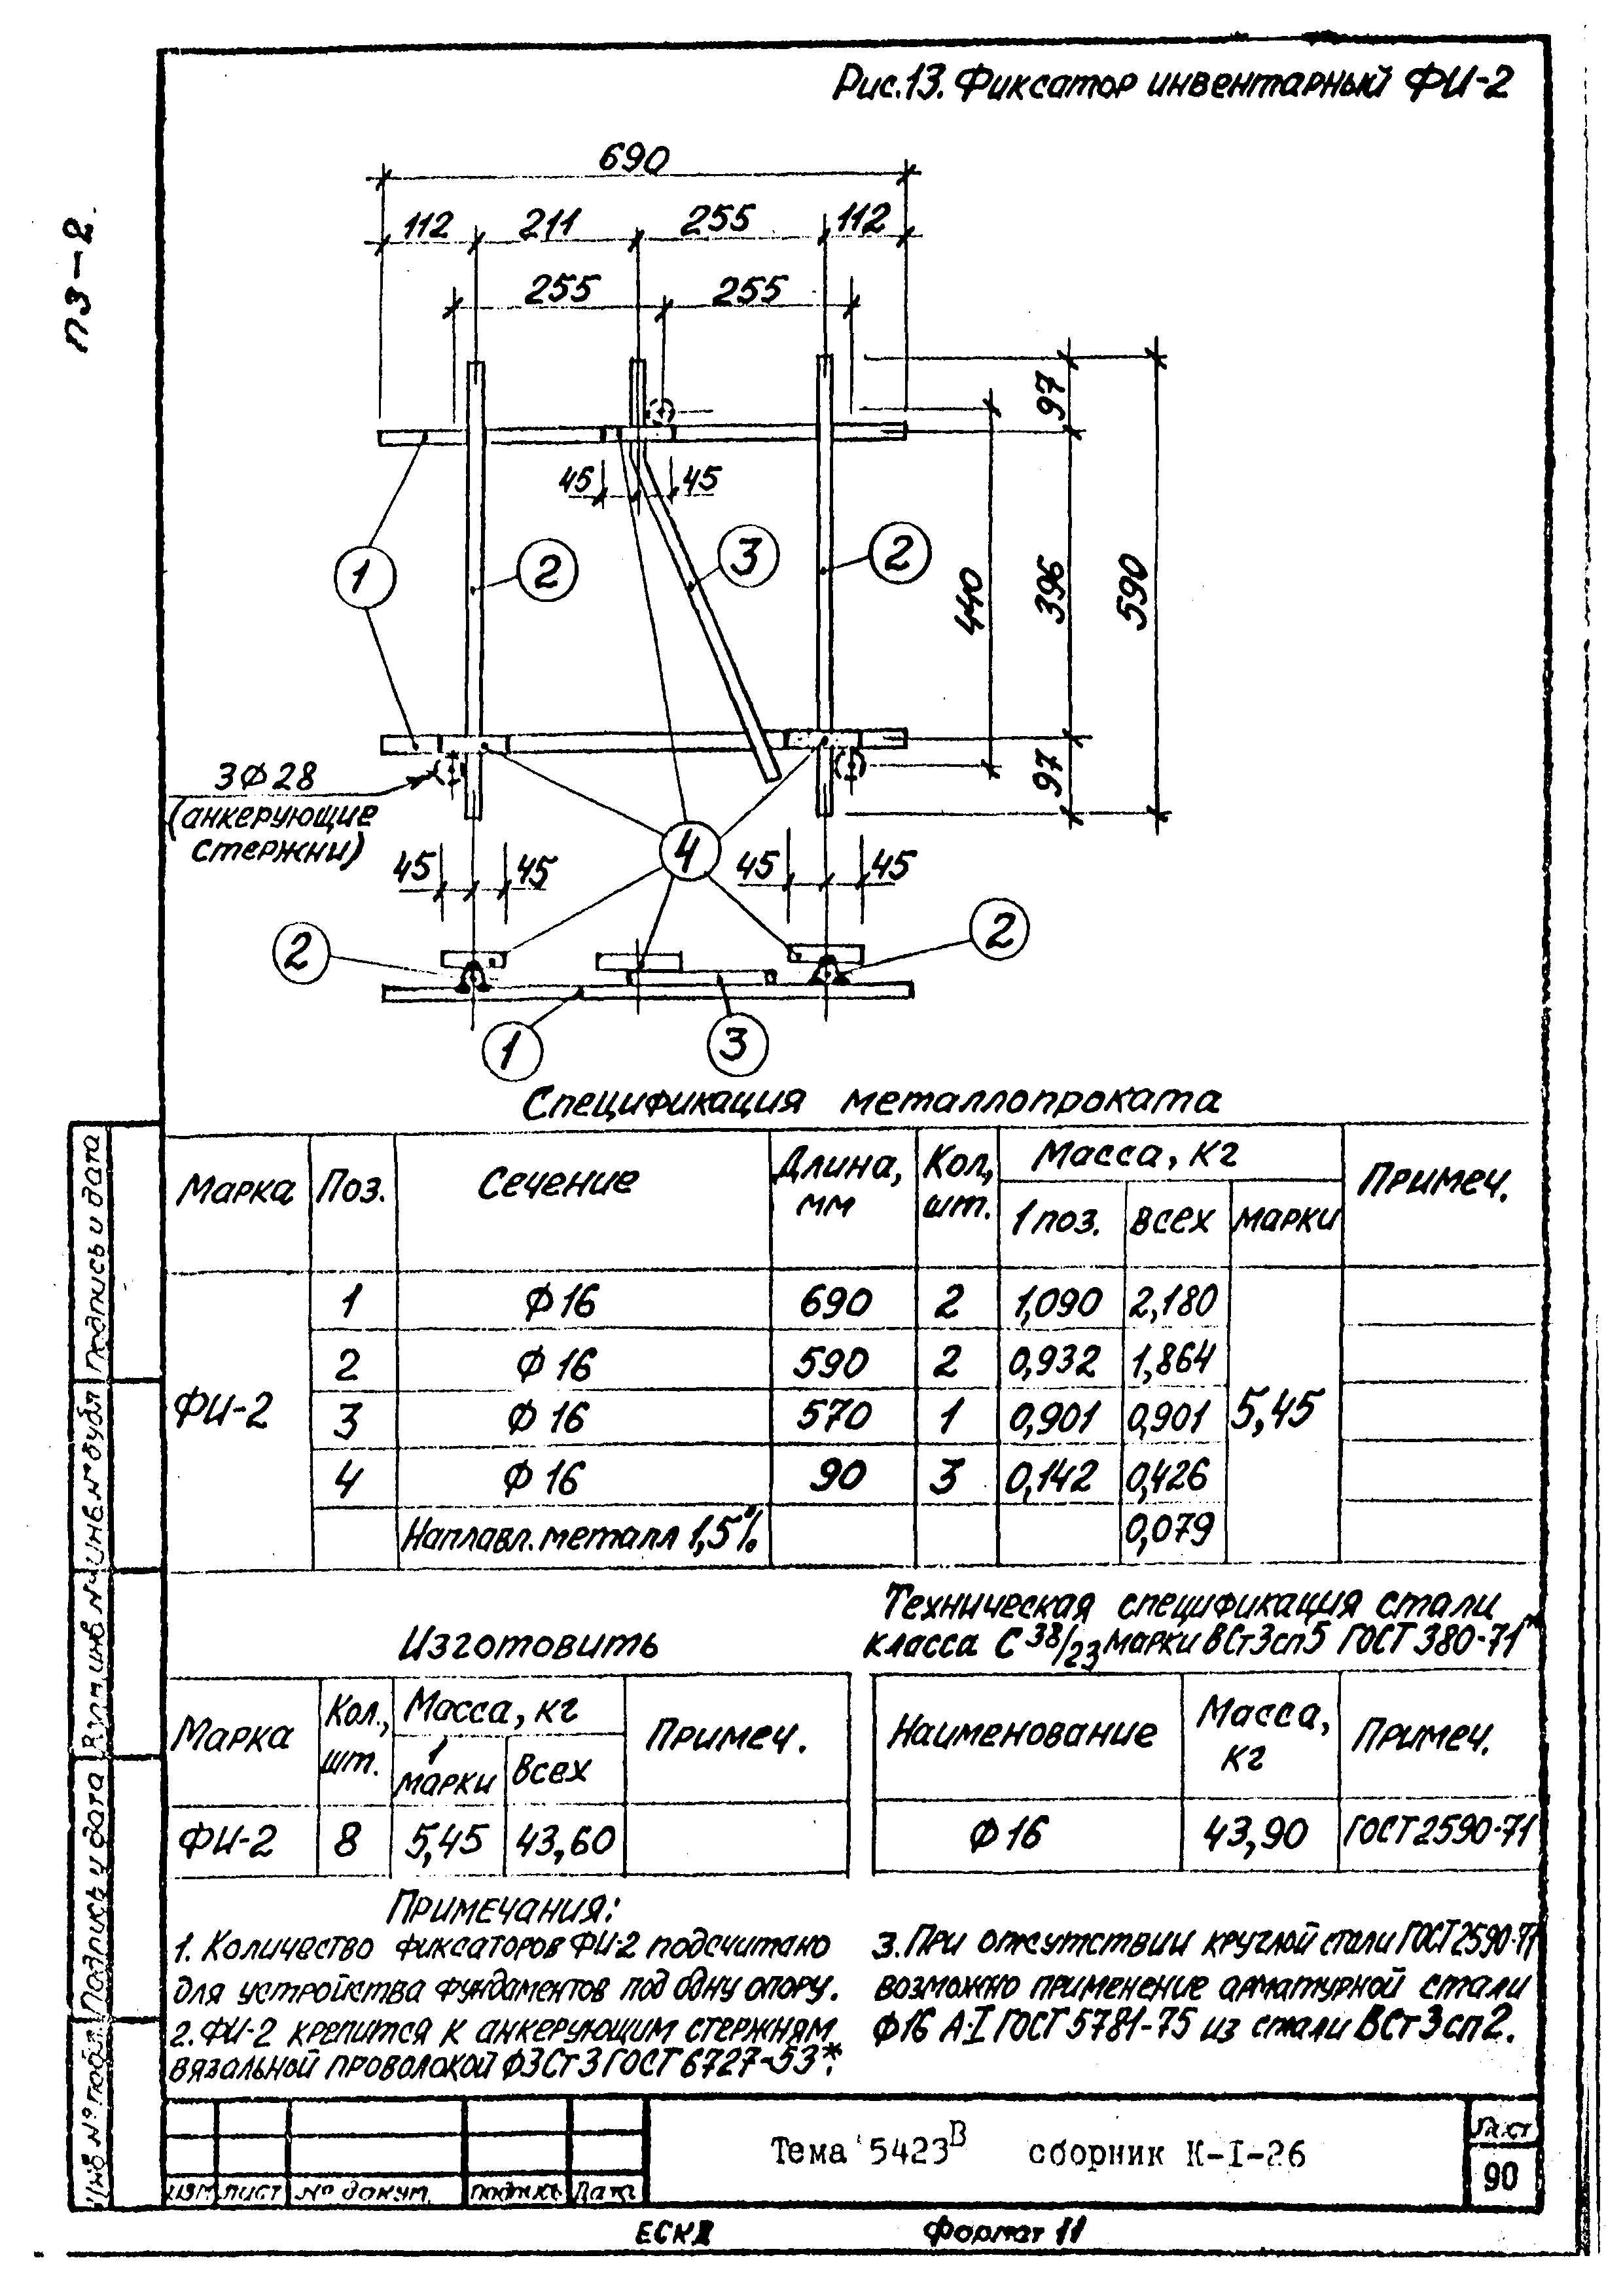 Рис.13. Фиксатор инвентарный ФИ-2
ПЗ-2.
690
112 211 255 112
255 255
97
45 45
1 2 3 2
440 396 590
3Ф28
(анкерующие
стержни)
97
4
45 45 45 45
2 2
1 3
Спецификация металлопроката
Марка Поз. Сечение Длина, мм Кол, шт. Масса, кг Примеч.
1 поз. всех марки
ФИ-2 5,45
1 Ф16 690 2 1,090 2,180
2 Ф16 590 2 0,932 1,864
3 Ф16 570 1 0,901 0,901
4 Ф16 90 3 0,142 0,426
Наплавл. металл 1,5% 0,079
Изготовить
Марка Кол., шт. Масса, кг Примеч.
1 марки Всех
ФИ-2 8 5,45 43,60
Техническая спецификация стали
класса С 38/23 марки ВСт3сп5 ГОСТ 380-71*
Наименование Масса, кг Примеч.
Ф16 43,90 ГОСТ 2590-71
Примечания:
1. Количество фиксаторов ФИ-2 подсчитано
для устройства фундаментов под одну опору.
2. ФИ-2 крепится к анкерующим стержням
вязальной проволокой Ф3Ст3 ГОСТ 6727-53*.
3. При отсутствии круглой стали ГОСТ 2590-71
возможно применение арматурной стали
Ф16 А-I ГОСТ 5781-75 из стали ВСт3сп2.
Подпись и дата
Инв. № дубл
Взам. инв. №
Подпись и дата
Инв № подл.
Изм Лист № докум. подпись Дата
Тема 5423В сборник К-I-26
Лист
90
ЕСКД Формат 11